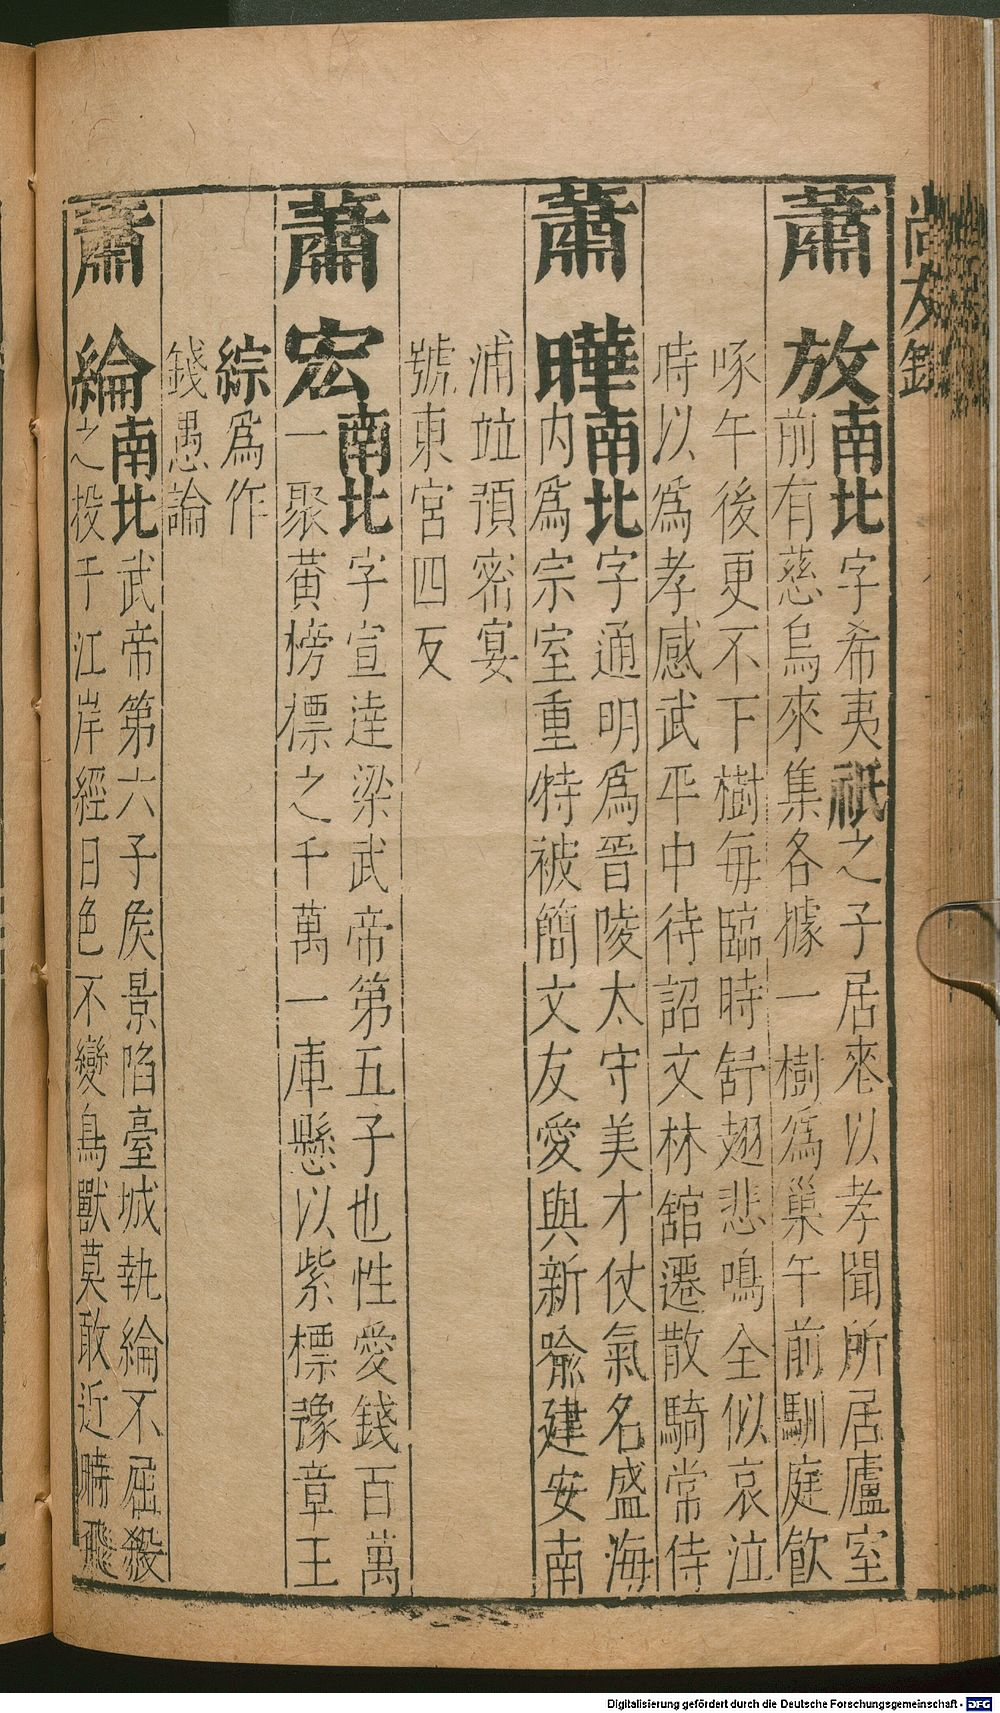 尚友錄
蕭放南北字希夷祗之子居喪以孝聞所居廬室
前有慈烏來集各據一樹爲巢午前馴庭飲
啄午後更不下樹每臨時舒翅悲鳴全似哀泣
時以爲孝感武平中待詔文林舘遷散騎常侍
蕭曄南北字通明爲晉陵太守美才仗氣名盛海
内爲宗室重特被簡文友愛與新喩建安南
浦竝預密宴
號東宮四友
蕭宏南北字宣逹梁武帝第五子也性愛錢百萬
一聚黄榜標之千萬一庫懸以紫標豫章王
綜爲作
錢愚論
蕭綸南北武帝第六子侯景陷臺城執綸不屈殺
之投于江岸經日色不變鳥獸莫敢近時飛
Digitalisierung gefördert durch die Deutsche Forschungsgemeinschaft - DFG